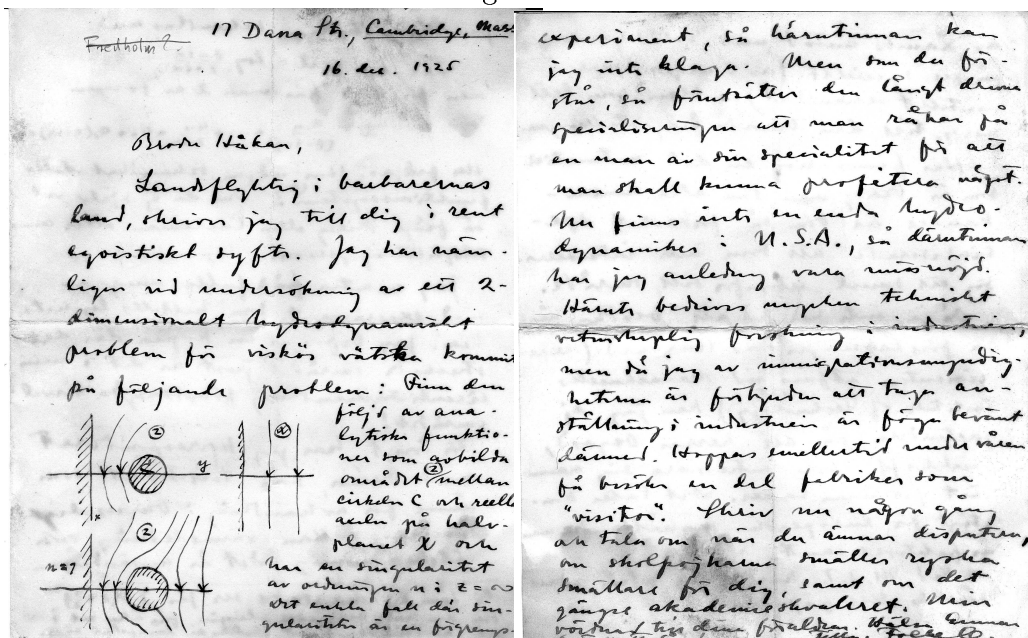 Fredholm?
17 Dana Str., Cambridge, Mass.
16. dec. 1925
Broder Håkan,
Landsflyktig i barbarernas
land, skriver jag till dig i rent
egoistiskt syfte. Jag har näm-
ligen vid undersökning av ett 2-
dimensionalt hydrodynamiskt
problem för viskös vätska kommit
på följande problem: Finn den
följd av ana-
lytiska funktio-
ner som avbilda
området (z) mellan
cirkeln C och reella
axeln på halv-
planet X och
har en singularitet
av ordningen n i z = ∞
Det enkla fall där sin-
gulariteten är en förgrenings-
z
y
x
z
n=?
experiment, så härutinnan kan
jag inte klaga. Men som du för-
står, så förutsätter den långt drivna
specialiseringen att man råkar på
en man av sin specialitet för att
man skall kunna profitera något.
Nu finns inte en enda hydro-
dynamiker i U.S.A., så därutinnan
har jag anledning vara missnöjd.
Härute bedrives mycken tekniskt
vetenskaplig forskning i industrien,
men då jag av immigrationsmyndig-
heterna är förbjuden att taga an-
ställning i industrien är föga bevänt
därmed. Hoppas emellertid under våren
få besöka en del fabriker som
"visitor". Skriv nu någon gång
och tala om när du ämnar disputera,
om skolpojkarna smäller ryska
smällare för dig, samt om det
gängse akademieskvallret. Min
vördnad till dina föräldrar. Hälsa